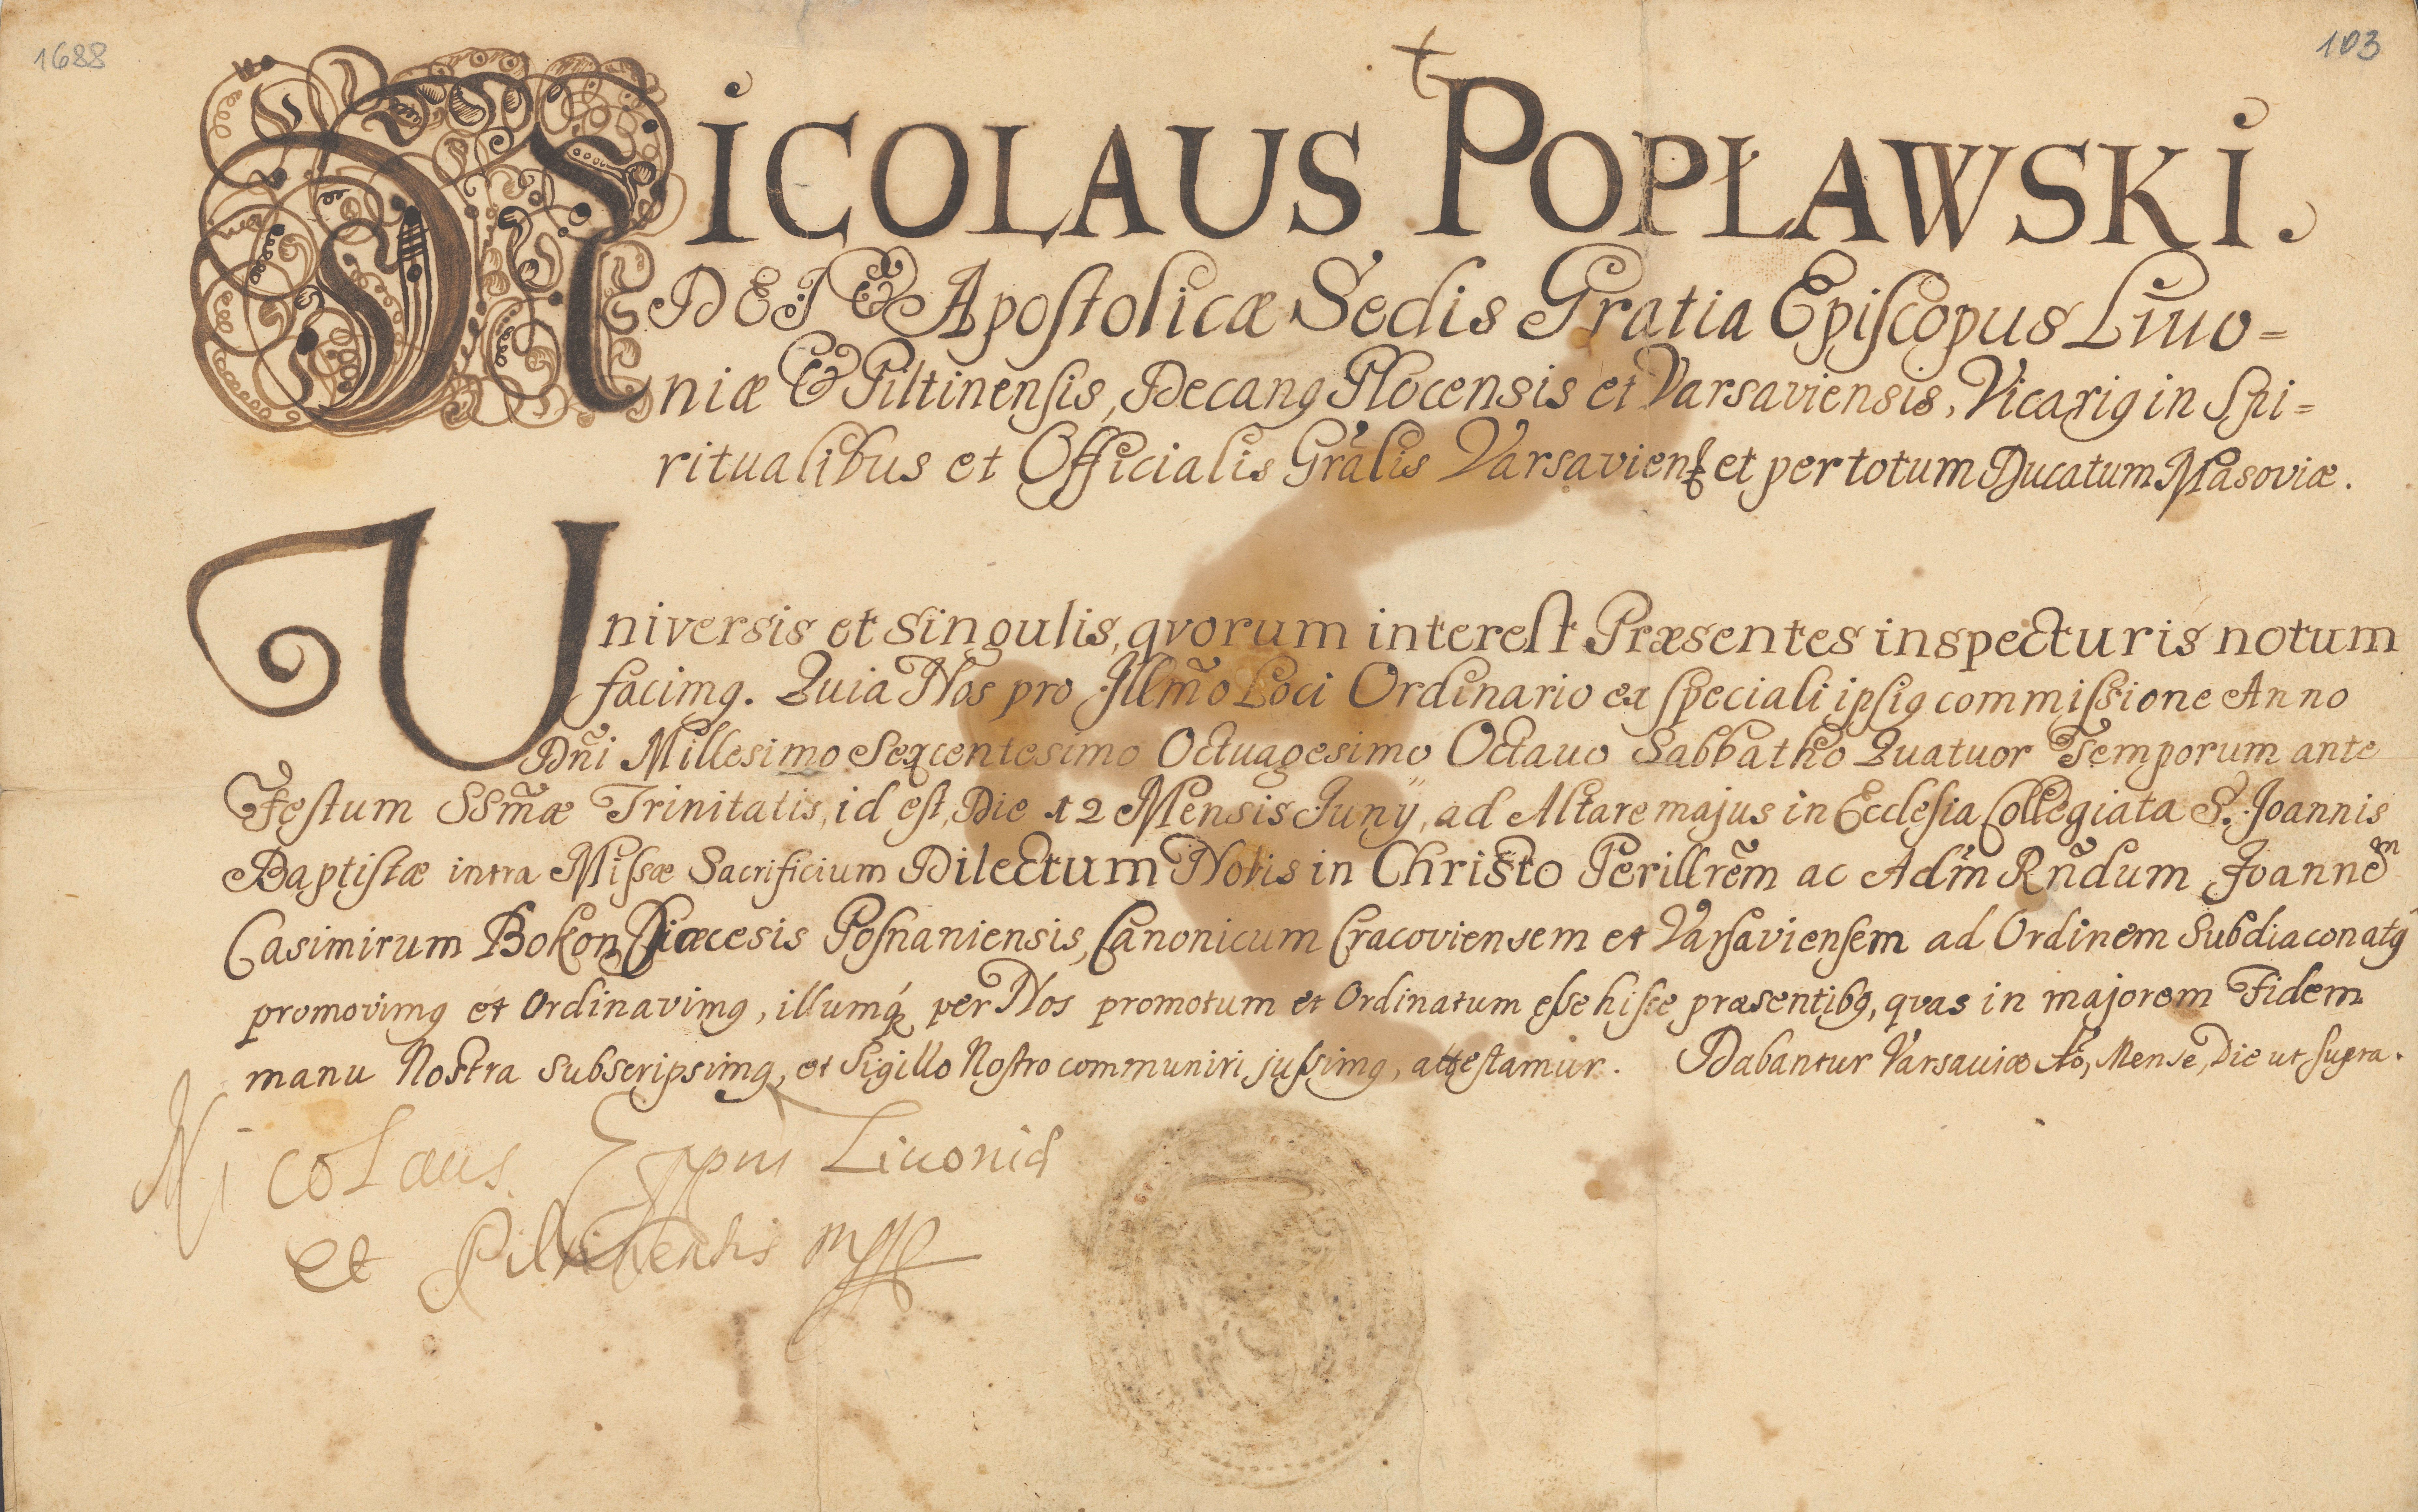 1688
103
NICOLAUS POPŁAWSKI.
DEI & Apostolicæ Sedis Gratia Episcopus Livo=
niæ & Piltinensis, Decanꝰ Plocensis et Varsaviensis, Vicariꝰ in Spi=
ritualibus et Officialis Grãlis Varsavienꝭ et per totum Ducatum Masoviæ.
Universis et singulis, qvorum interest Præsentes inspecturis notum
facimꝰ. Quia Nos pro Illm̃o Loci Ordinario ex speciali ipsiꝰ commissione Anno
Dñi Millesimo Sexcentesimo Octuagesimo Octavo Sabbatho Quatuor Temporum ante
Festum SSm̃æ Trinitatis, id est, Die 12 Mensis Junÿ, ad Altare majus in Ecclesia Collegiata S. Joannis
Baptistæ intra Missæ Sacrificium Dilectum Nobis in Christo Perillrẽm ac Adm̃ Rñdum Joannem
Casimirum Bokon Diæcesis Posnaniensis, Canonicum Cracoviensem et Varsaviensem ad Ordinem Subdiaconatꝰ
promovimꝰ et Ordinavimꝰ, illumq́ꝫ per Nos promotum et Ordinatum esse hisce præsentibꝰ, qvas in majorem Fidem
manu Nostra subscripsimꝰ, et Sigillo Nostro communiri jussimꝰ, attestamur. Dabantur Varsaviæ Aõ, Mense, Die ut supra.
Nicolaus Eppus Livoniæ
et Piltinensis mpp